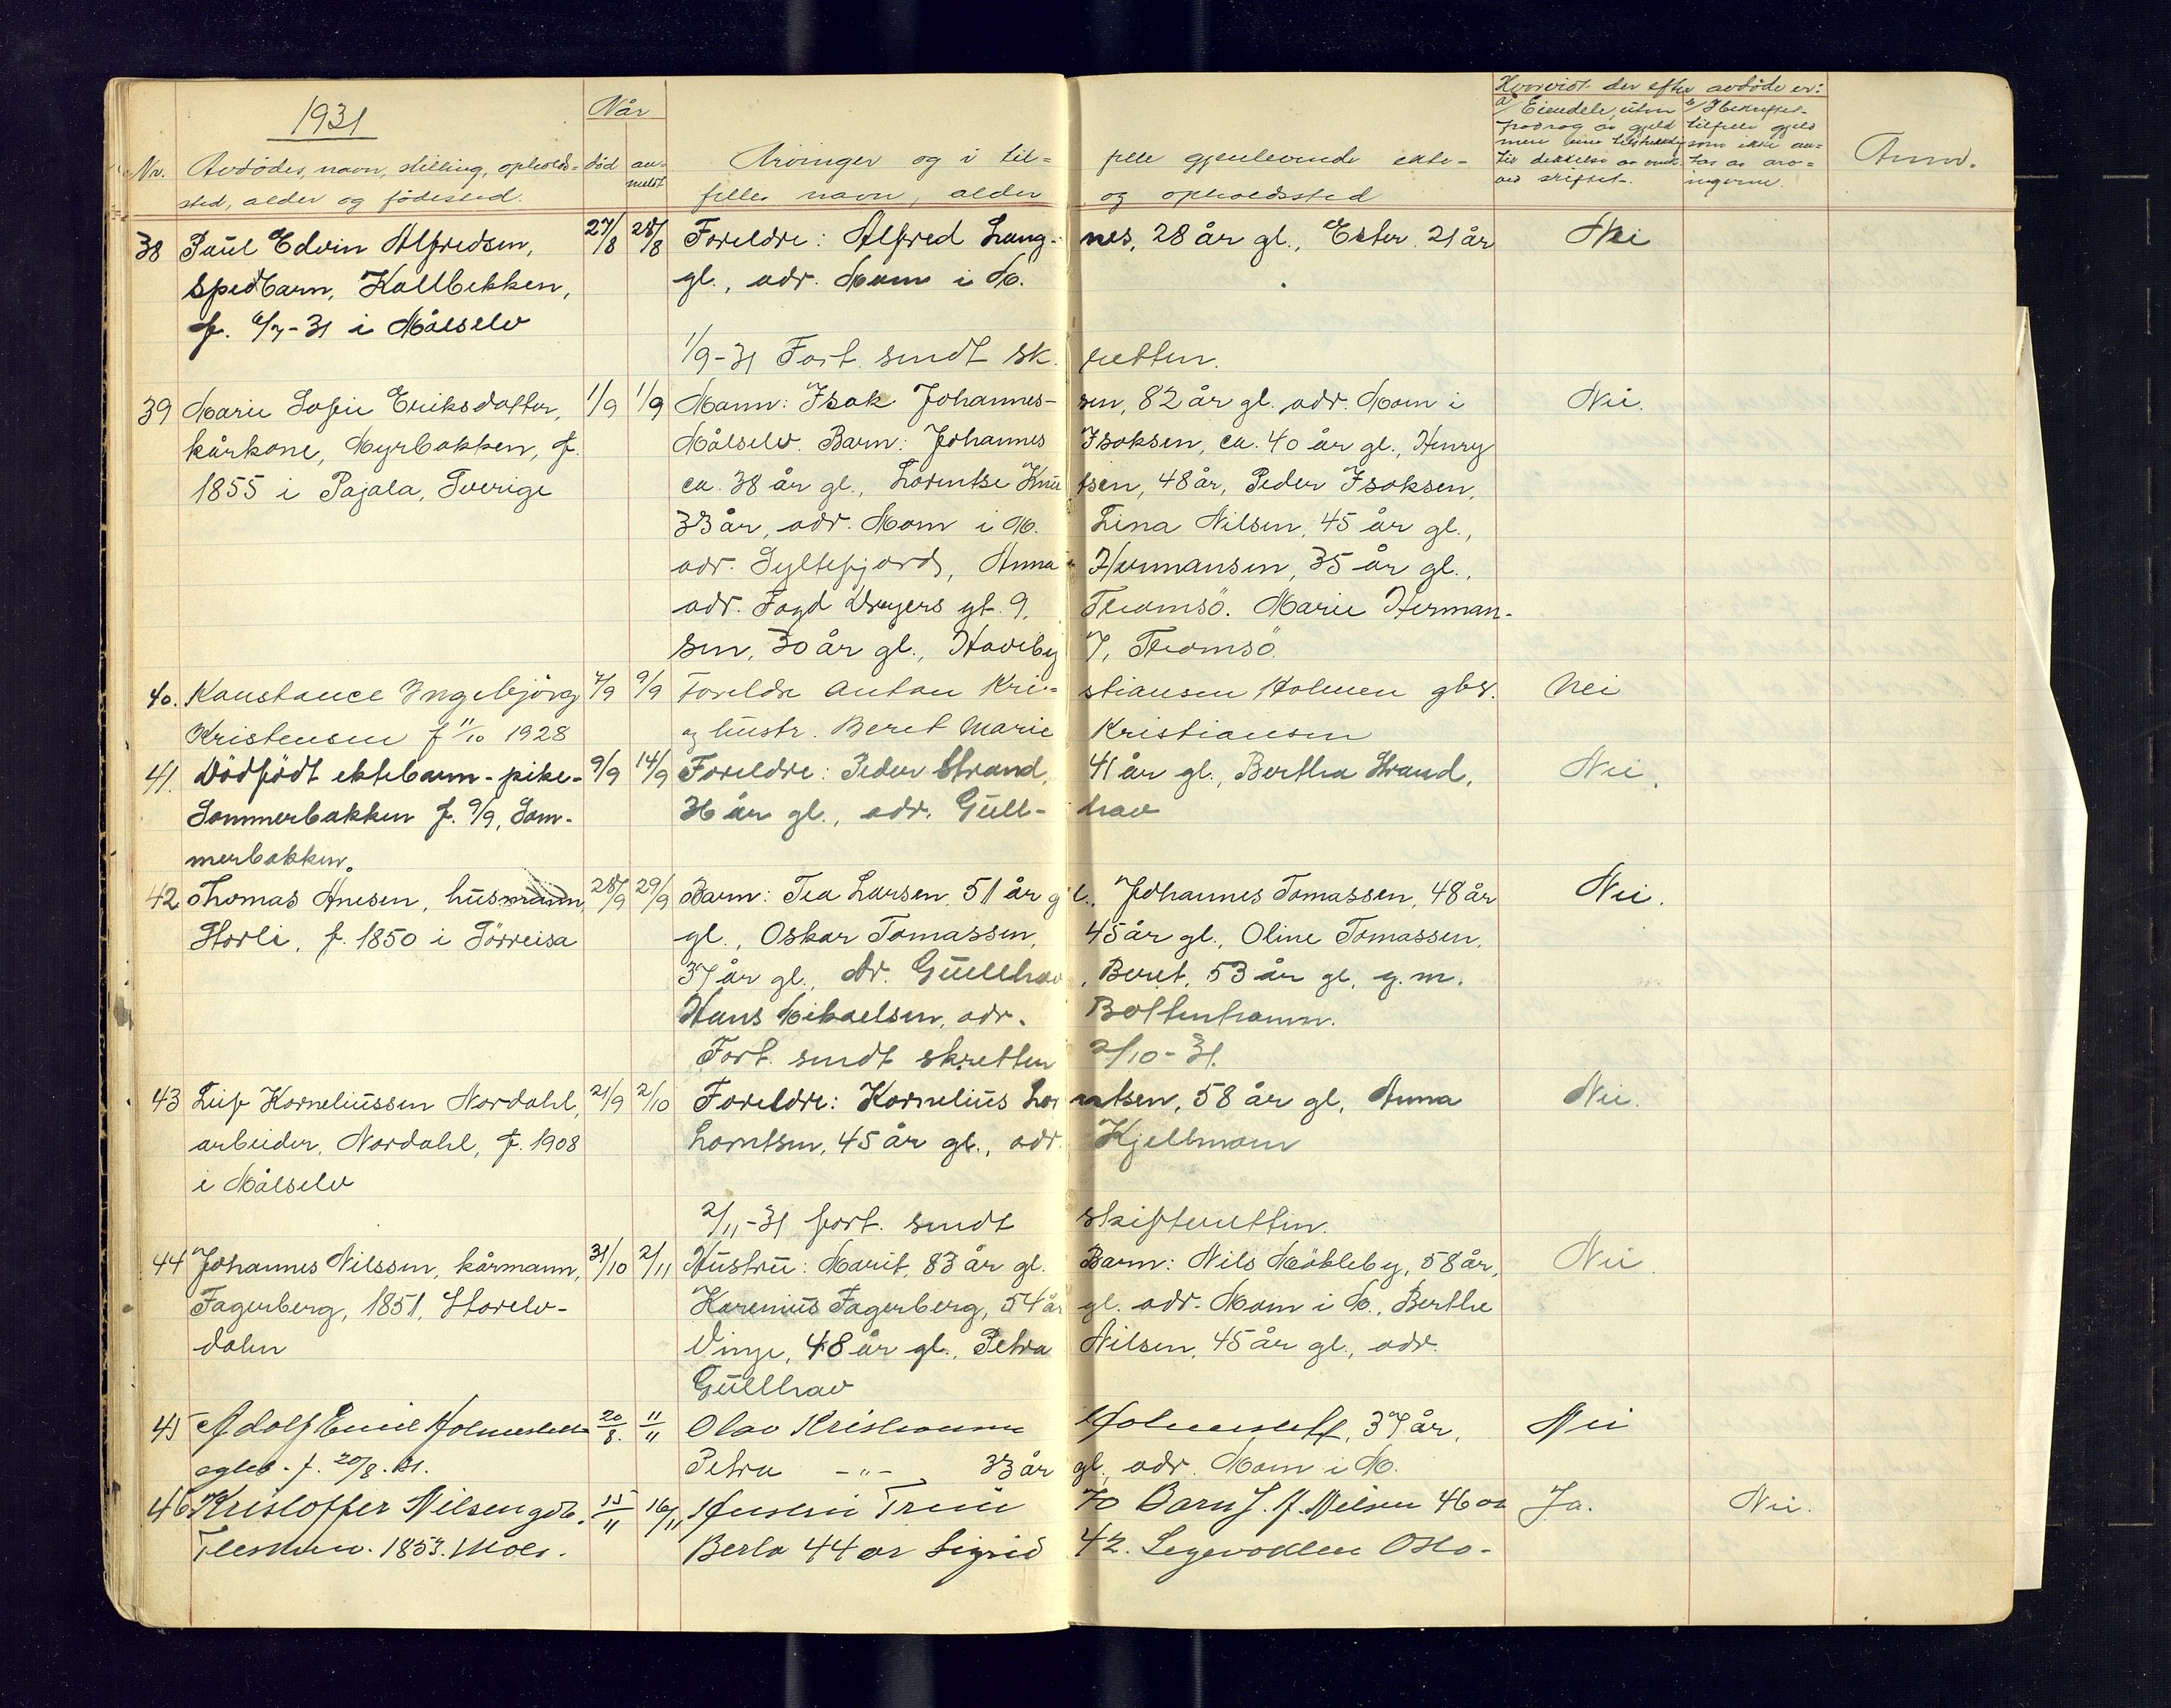 1931
Når
Hvorvidt der efter avdöde er:
Nr. Avdödes, navn, stilling, opholds- död an- Arvinger og i til- felle gjenlevende ekte- a/ Eiendele, uten b/ I bekreftet- Anm.
sted, alder og födested. meldt felles navn, alder og opholdssted
tilfelle gjeld
som ikke an-
ved skiftet. ingerne.
38 Paul Edvin Alfredsen, 27/8 28/8 Foreldre: Alfred Lang- nes, 28 år gl., Ester 21 år Nei
spedbarn, Kallbekken, gl., adr. Mom i M.
f. 6/7-31 i Målselv
1/9-31 Fort. sendt sk. retten.
39 Marie Sofie Eriksdatter, 1/9 1/9 Mann: Isak Johannes- sen, 82 år gl. adr. Mom i Nei.
kårkone, Myrbakken, f. Målselv. Barn: Johannes Isaksen, ca. 40 år gl., Henry
1855 i Pajala, Sverige ca. 38 år gl., Lorentse Knu tsen, 48 år, Peder Isaksen,
33 år, adr. Mom i M. Lina Nilsen, 45 år gl.,
adr. Syltefjord, Anna Hermansen, 35 år gl.,
adr. Fogd Dreyers gt. 9, Tromsö. Marie Herman-
sen, 30 år gl., Havreby 7, Tromsö
40. Konstance Ingebjörg 7/9 9/9 Foreldre Anton Kri- stiansen Holmen gbr. Nei
Kristensen f 11/10 1928 og hustr. Beret Marie Kristiansen
41. Dödfödt ektebarn-pike- 9/9 14/9 Foreldre: Peder Strand, 41 år gl., Bertha Strand, Nei.
Sommerbakken f. 9/9, Som- 36 år gl., adr. Gull- hav
merbakken.
42 Thomas Anesen, husmann, 28/9 29/9 Barn: Tea Larsen, 51 år g l., Johannes Tomassen, 48 år Nei.
Storli, f. 1850 i Sörreisa gl., Oskar Tomassen, 45 år gl., Oline Tomassen,
37 år gl., Adr. Gullhav , Beret, 53 år gl, g.m.
Hans Mikaelsen, adr. Bottenhavn.
Fort. sendt skretten 2/10-31.
43 Leif Korneliussen Nordahl, 21/9 2/10 Foreldre: Kornelius Lor entsen, 58 år gl, Anna Nei.
arbeider, Nordahl, f. 1908 Lorntsen, 45 år gl., adr. Kjellmoen
i Målselv
2/11-31 fort. sendt skifteretten.
44 Johannes Nilssen, kårmann, 31/10 2/11 Hustru: Marit, 83 år gl. Barn: Nils Mökleby, 58 år, Nei.
Fagerberg, 1851, Storelv- Karenius Fagerberg, 54 år gl. adr. Mom i M., Berthe
dalen Vinje, 48 år gl., Petra Nilsen, 45 år gl., adr.
Gullhav
45 Adolf Emil Holmeslett 20/8. 11/11 Olav Kristiansen Holmeslett, 37 år, Nei
f. 20/8. 31. Petra -"-, 33 år gl., adr. Mom i M.
46 Kristoffer Nilsen gdb. 15/11 16/11 Hustru Trine 70 Barn J. N. Nilsen 46 år Ja. Nei.
1853. Berta 44 år Sigrid 42. Oslo-